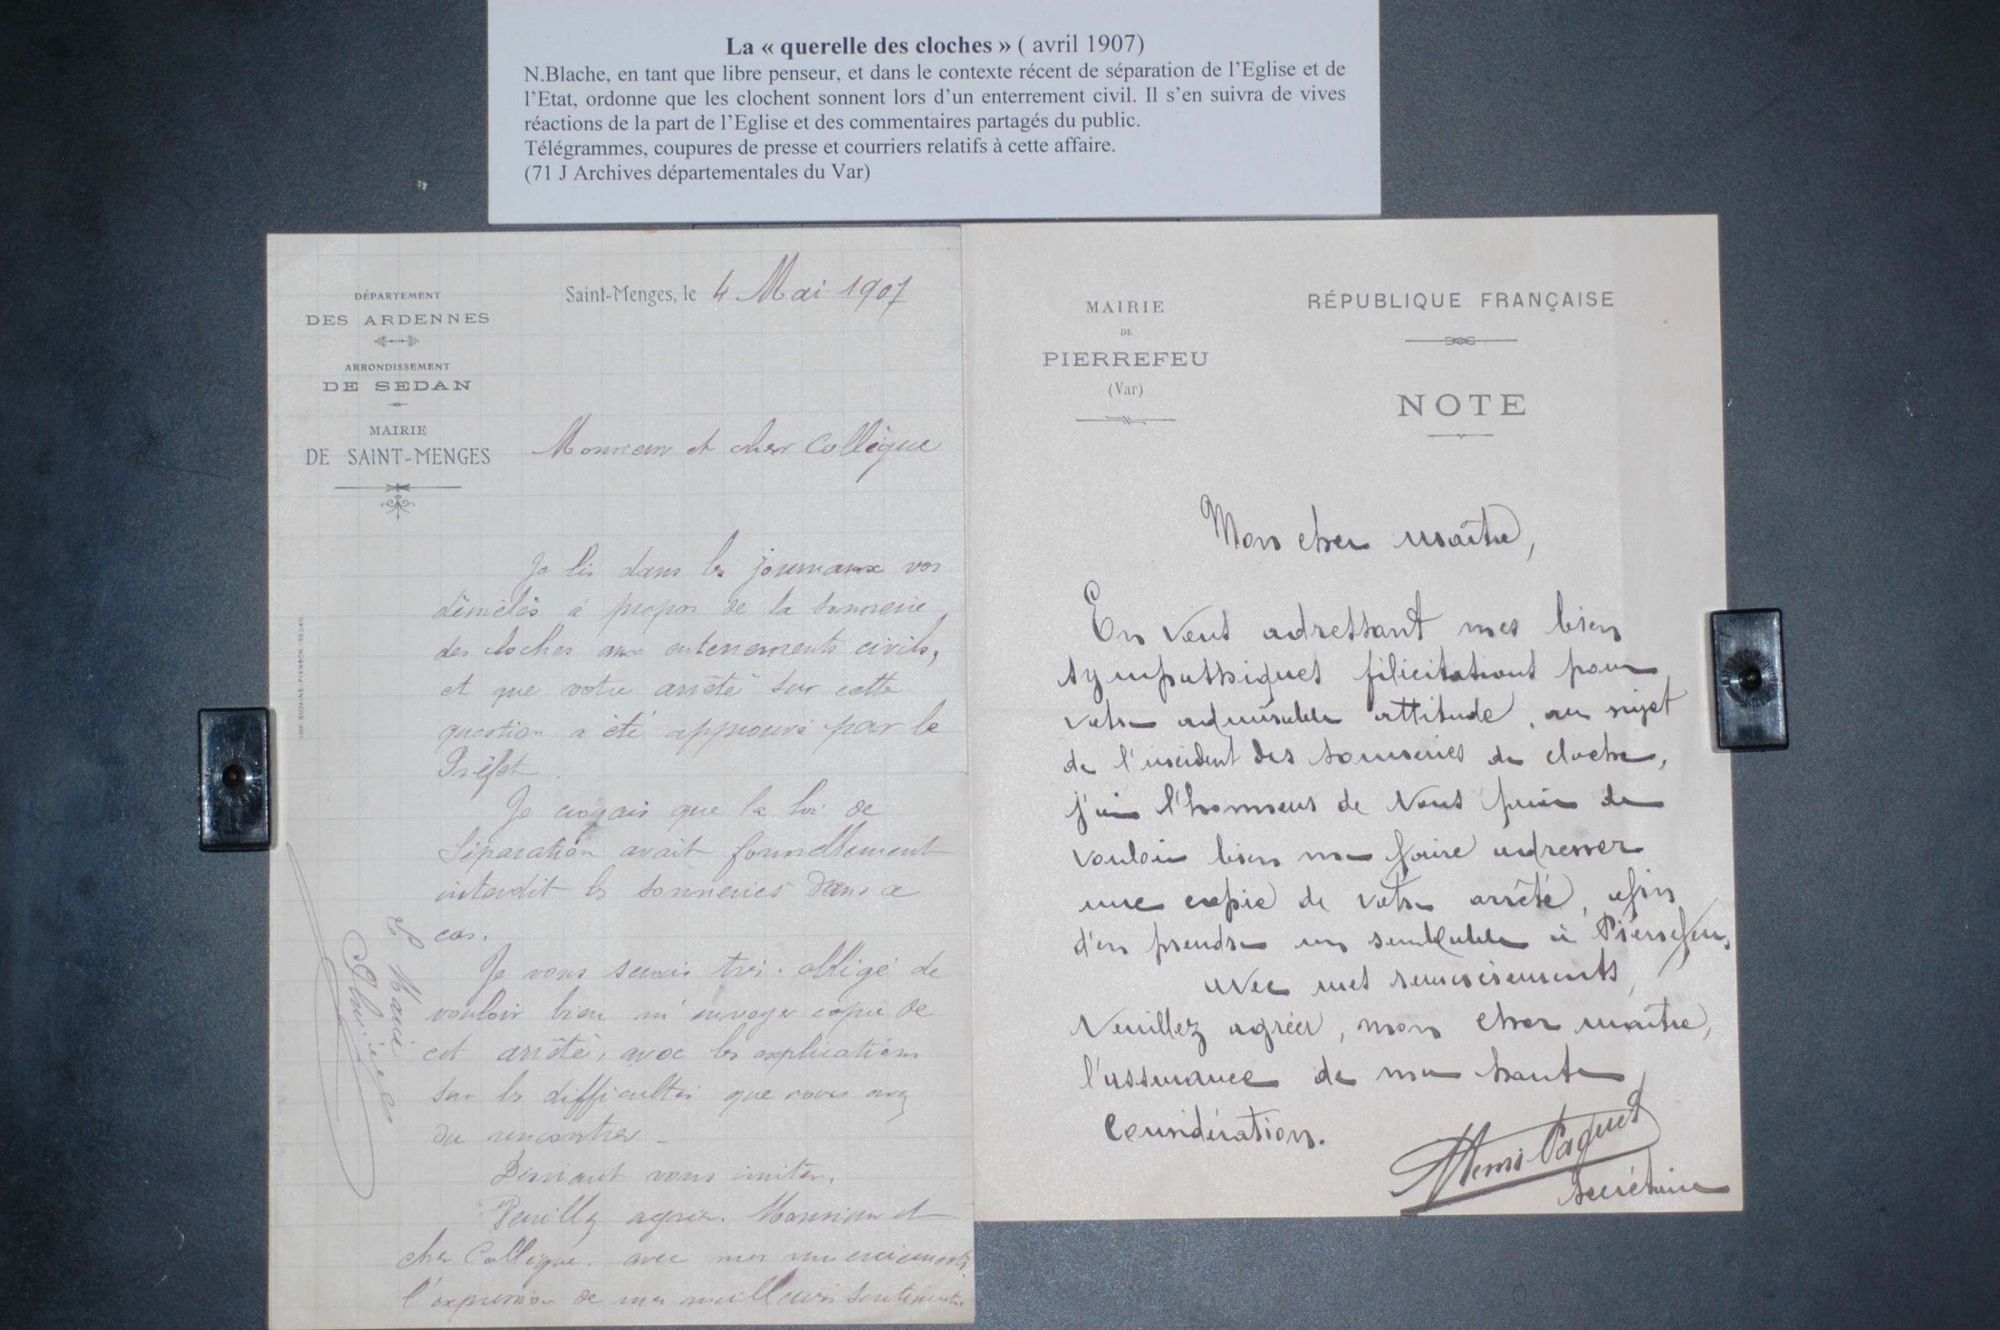 La « querelle des cloches » ( avril 1907)
N.Blache, en tant que libre penseur, et dans le contexte récent de séparation de l'Eglise et de
l'Etat, ordonne que les clochent sonnent lors d'un enterrement civil. Il s'en suivra de vives
réactions de la part de l'Eglise et des commentaires partagés du public.
Télégrammes, coupures de presse et courriers relatifs à cette affaire.
(71 J Archives départementales du Var)
DÉPARTEMENT
DES ARDENNES
ARRONDISSEMENT
DE SEDAN
MAIRIE
DE SAINT-MENGES
Saint-Menges, le 4 Mai 1907
Monsieur et cher Collègue
Je lis dans les journaux vos
démêlés à propos de la sonnerie
des cloches aux enterrements civils,
et que votre arrêté sur cette
question a été approuvé par le
Préfet.
Je croyais que la loi de
Séparation avait formellement
interdit les sonneries dans ce
cas.
Je vous serais très obligé de
vouloir bien m'envoyer copie de
cet arrêté, avec les explications
sur les difficultés que vous avez
du rencontrer
Désirant vous imiter,
Veuillez agréer, Monsieur et
cher Collègue, avec mes remerciements
l'expression de mes meilleurs sentiments
Le Maire
MAIRIE
DE
PIERREFEU
(Var)
RÉPUBLIQUE FRANÇAISE
NOTE
Mon cher maître,
En vous adressant mes bien
sympathiques félicitations pour
votre admirable attitude, au sujet
de l'incident des sonneries de cloche,
j'ai l'honneur de vous prier de
vouloir bien me faire adresser
une copie de votre arrêté, afin
d'en prendre un semblable à Pierrefeu,
avec mes remerciements,
Veuillez agréer, mon cher maître,
l'assurance de ma haute
considération.
Henri Paquet
Secrétaire